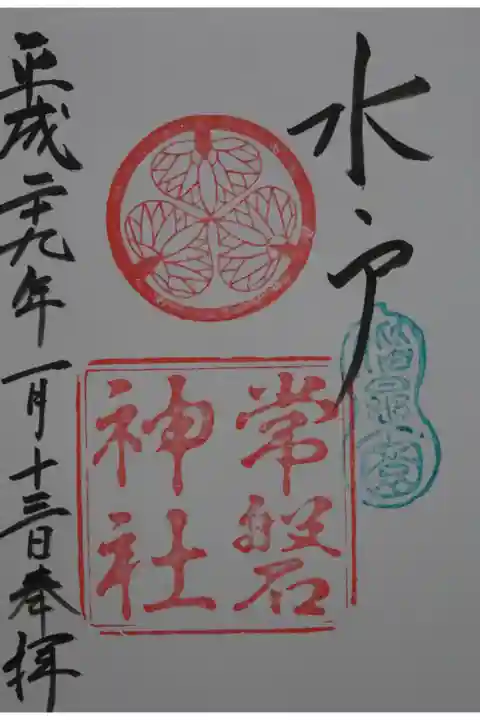 水戸
常磐
神社
平成二十九年一月十三日奉拝